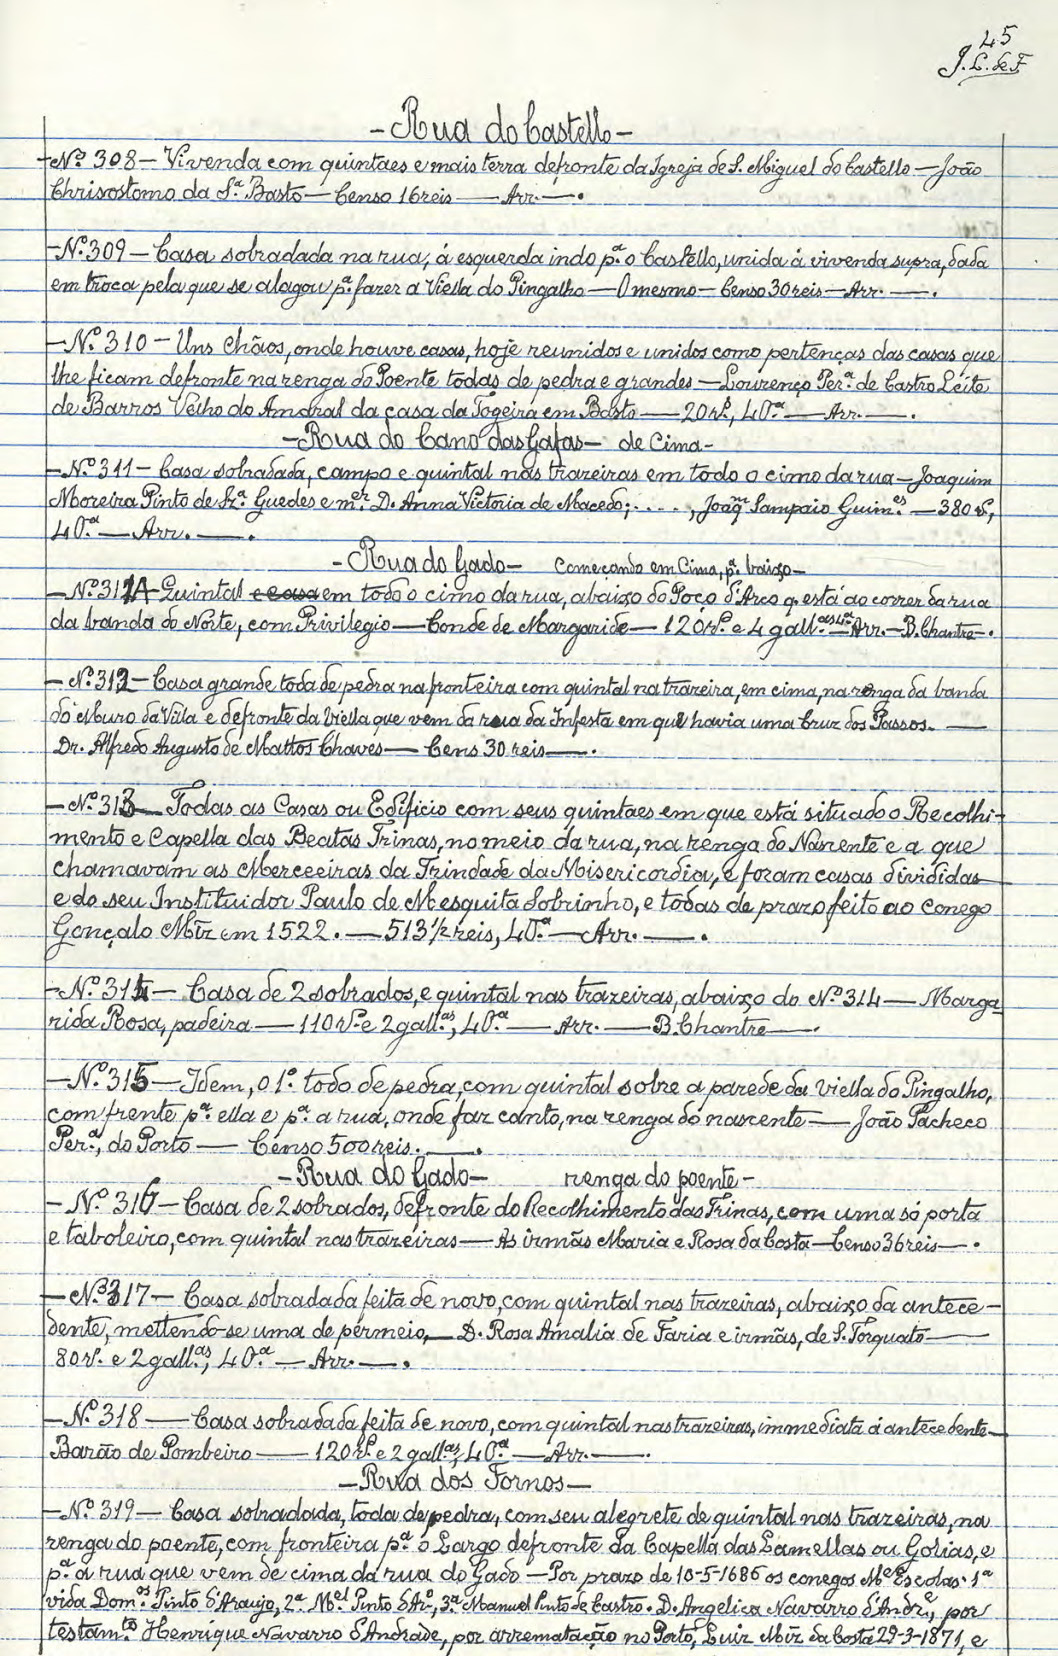 45
J. L. de F
- Rua do Castello -
- Nº 308 - Vivenda com quintaes e mais terra defronte da Igreja de S. Miguel do Castello - João
Chrisostomo da Sª Basto - Censo 16 reis - Arr. - .
- Nº 309 - Casa sobradada na rua, á esquerda indo pª o Castello, unida á vivenda supra, dada
em troca pela que se alagou pª fazer a Viella do Pingalho - O mesmo - Censo 30 reis - Arr. - .
- Nº 310 - Uns chãos, onde houve casas, hoje reunidos e unidos como pertenças das casas que
lhe ficam defronte na renga do Poente todas de pedra e grandes - Lourenço Perª de Castro Leite
de Barros Velho do Amaral da casa da Togeira em Basto - 20 rs., 40ª - Arr. - .
- Rua do Cano das Gafas - de Cima -
- Nº 311 - Casa sobradada, campo e quintal nas trazeiras em todo o cimo da rua - Joaquim
Moreira Pinto de Guedes e mer D. Anna Victoria de Macedo; . . . . , Joaqm Sampaio Guimes - 380 rs,
40ª - Arr. - .
- Rua do Gado - Começando em Cima, pª baixo -
- Nº 311A - Quintal e casa em todo o cimo da rua, abaixo do Poço d'Arco q está ao correr da rua
da banda do Norte, com Privilegio - Conde de Margaride - 120 rs. e 4 gallas 4ª - Arr. - B. Chantre - .
- Nº 312 - Casa grande toda de pedra na fronteira com quintal na trazeira, em cima, na renga da banda
do Muro da Villa e defronte da Viella que vem da rua da Infesta em que havia uma Cruz dos Passos. -
Dr. Alfredo Augusto de Mattos Chaves - Cens 30 reis - .
- Nº 313 - Todas as Casas ou Edificio com seus quintaes em que está situado o Recolhi-
mento e Capella das Beatas Trinas, no meio da rua, na renga do Nascente e a que
chamavam as Merceeiras da Trindade da Misericordia, e foram casas divididas
e do seu Instituidor Paulo de Mesquita Sobrinho, e todas de prazo feito ao conego
Gonçalo Miz em 1522. - 513 1/2 reis, 40ª - Arr. - .
- Nº 314 - Casa de 2 sobrados, e quintal nas trazeiras, abaixo do Nº 314 - Marga
rida Rosa, padeira - 110 rs. e 2 gallas, 40ª - Arr. - B. Chantre - .
- Nº 315 - Idem, o 1º todo de pedra, com quintal sobre a parede da viella do Pingalho,
com frente pª ella e pª a rua, onde faz canto, na renga do nascente - João Pacheco
Perª, do Porto - Censo 500 reis. - .
- Rua do Gado - renga do poente -
- Nº 316 - Casa de 2 sobrados, defronte do Recolhimento das Trinas, com uma só porta
e taboleiro, com quintal nas trazeiras - As irmãs Maria e Rosa da Costa - Censo 36 reis - .
- Nº 317 - Casa sobradada feita de novo, com quintal nas trazeiras, abaixo da antece-
dente, mettendo-se uma de permeio, - D. Rosa Amalia de Faria e irmãs, de S. Torquato -
80 rs. e 2 gallas, 40ª - Arr. - .
- Nº 318 - Casa sobradada feita de novo, com quintal nas trazeiras, immediata á antecedente -
Barão de Pombeiro - 120 rs. e 2 gallas, 40ª - Arr. - .
- Rua dos Fornos -
- Nº 319 - Casa sobradada, toda de pedra, com seu alegrete de quintal nas trazeiras, na
renga do poente, com fronteira pª o Largo defronte da Capella das Lamellas ou Golias, e
pª a rua que vem de cima da rua do Gado - Por prazo de 10-5-1686 os conegos Me Escolas. 1ª
vida Domos Pinto d'Araujo, 2ª Mel Pinto d'Aro, 3ª Manuel Pinto de Castro. D. Angelica Navarro d'Andre, por
testamto Henrique Navarro d'Andrade, por arrematação no Porto, Luiz Miz da Costa 29-3-1871, e